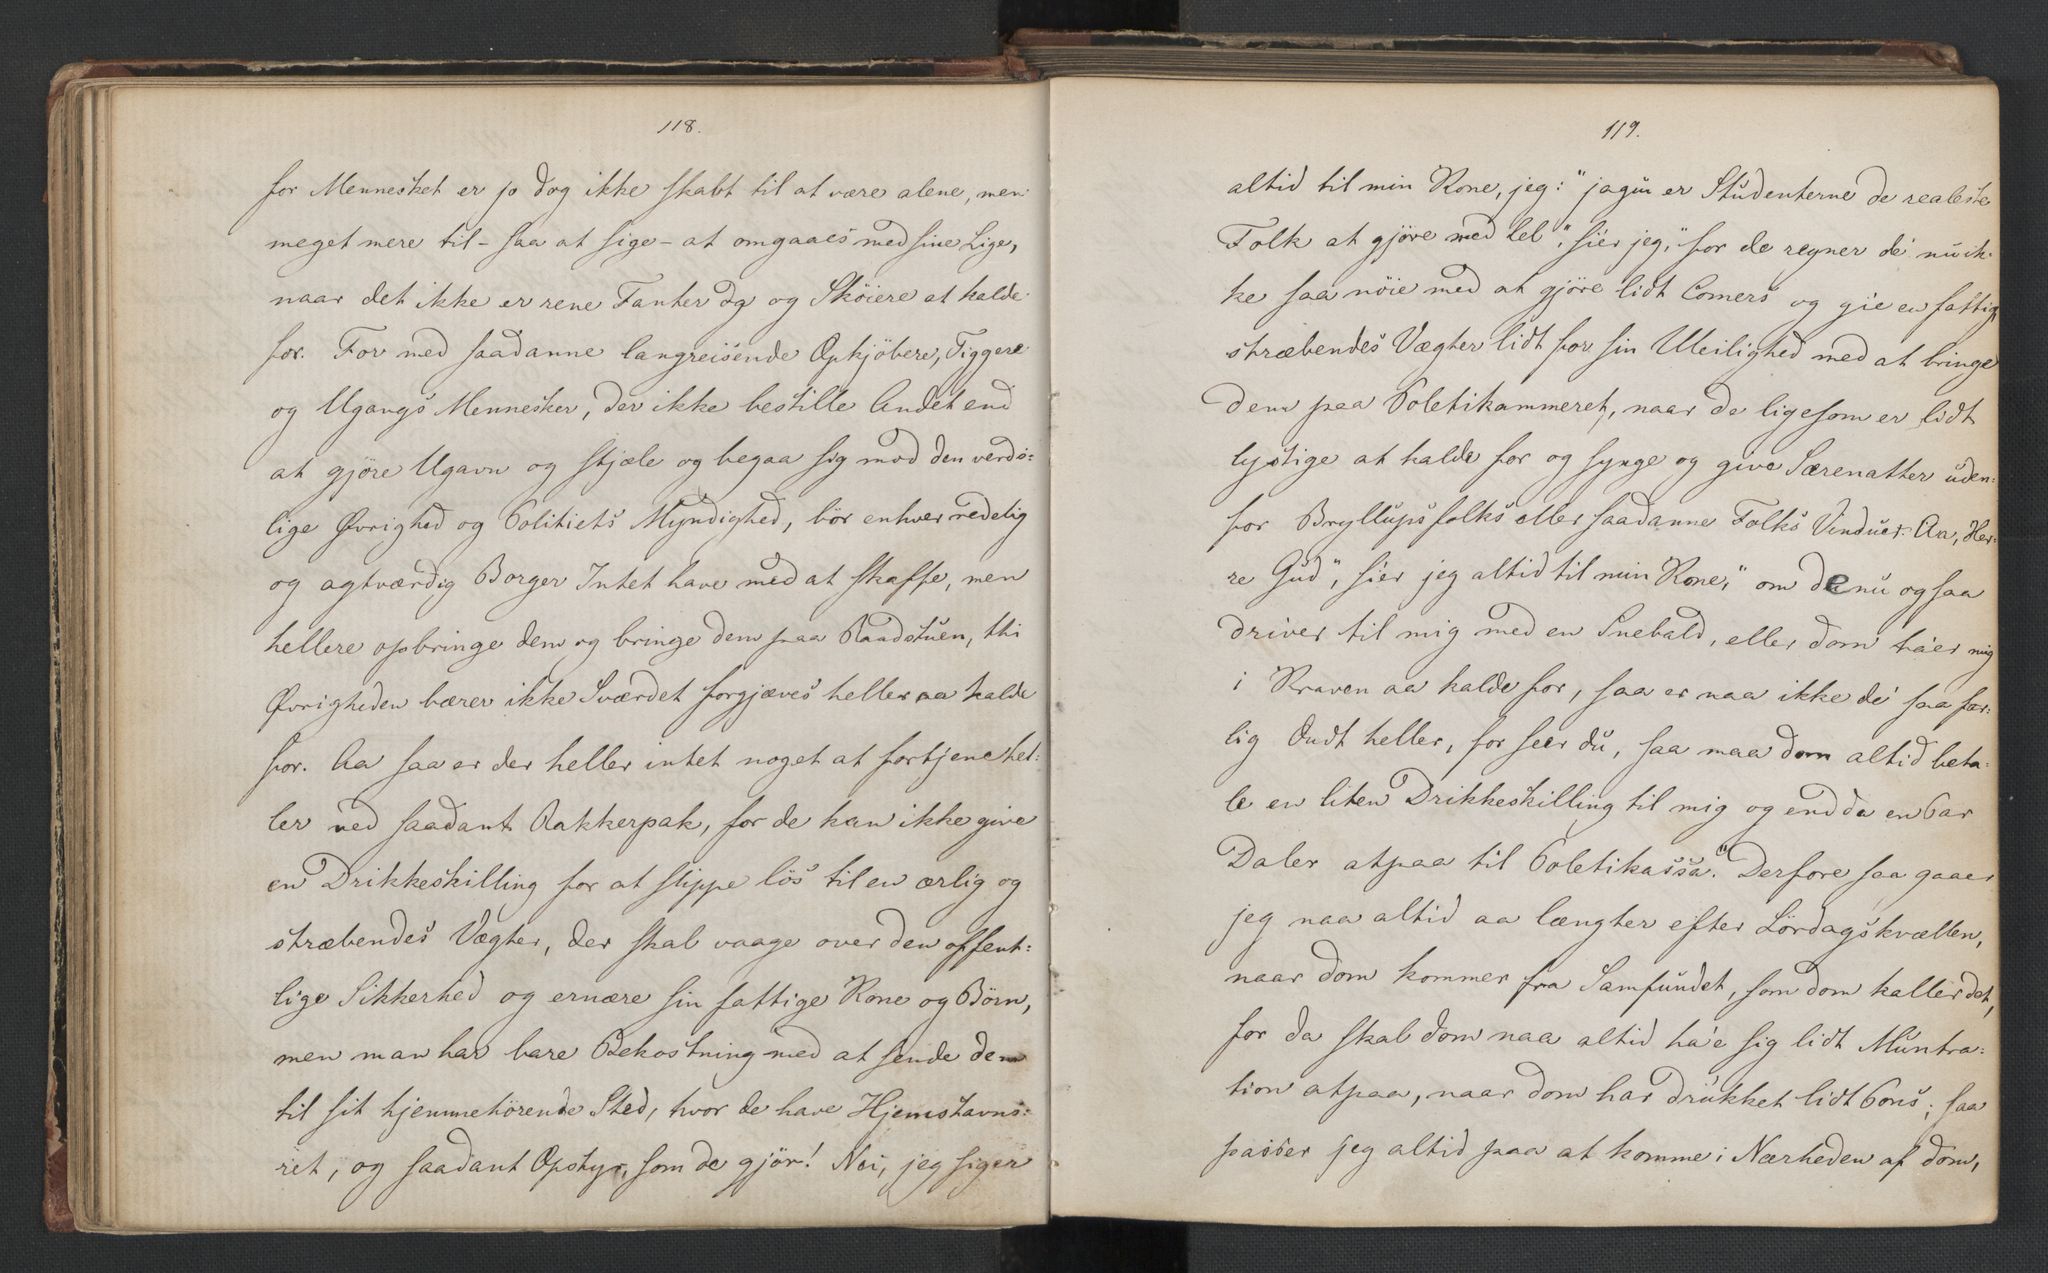 118.
for Mennesket er jo dog ikke skabt til at være alene, men
meget mere til - saa at sige - at omgaaes med sine Lige,
naar det ikke er rene Fanter og og Skøiere at kalde
for. For med saadanne langreisende Opkjöbere, Tiggere
og Ugangs Mennesker, der ikke bestille Andet end
at gjöre Ugavn og stjæle og begaa sig mod den verds-
lige Øvrighed og Politiets Myndighed, bör enhver redelig
og agtværdig Borger Intet have med at skaffe, men
hellere opbringe dem og bringe dem paa Raadstuen, thi
Øvrigheden bærer ikke Sværdet forgjæves heller aa kalde
for. Aa saa er der heller intet noget at fortjene hel-
ler ved saadant Rakkerpak, for de kan ikke give
en Drikkeskilling for at slippe lös til en ærlig og
stræbendes Vægter, der skal vaage over den offent-
lige Sikkerhed og ernære sin fattige Kone og Börn,
men man har bare Bekostning med at sende dem
til sit hjemmehörende Sted, hvor de have Hjemstavns-
ret, og saadant Opstyr, som de gjör! Nei, jeg siger
119.
altid til min Kone, jeg: "jagu er Studenterne de realeste
Folk at gjöre med lel", sier jeg, "for de regner de' nu ik-
ke saa nöie med at gjöre lidt Comers og gie en fattig
stræbendes Vægter lidt for sin Uleilighed med at bringe
dem paa Poletikammeret, naar de ligesom er lidt
lystige at kalde for og synge og give Særenatter uden-
for Bryllupsfolks eller saadanne Folks Vinduer. Aa, Her-
re Gud", sier jeg altid til min Kone, "om de nu ogsaa
driver til mig med en Snebald, eller dom ta'er mig
i Kraven aa kalde for, saa er naa ikke de' saa far-
lig Ondt heller, for seer du, saa maa dom altid beta-
le en liten Drikkeskilling til mig og endda en Par
Daler atpaa til Poletikassa." Derfore saa gaaer
jeg naa altid aa længter efter Lördagskvællen,
naar dom kommer fra Samfundet, som dom kaller det,
for da skal dom naa altid ha'e sig lidt Muntra-
tion atpaa, naar dom har drukket lidt Pons; saa
passer jeg altid paa at komme i Nærheden af dom,